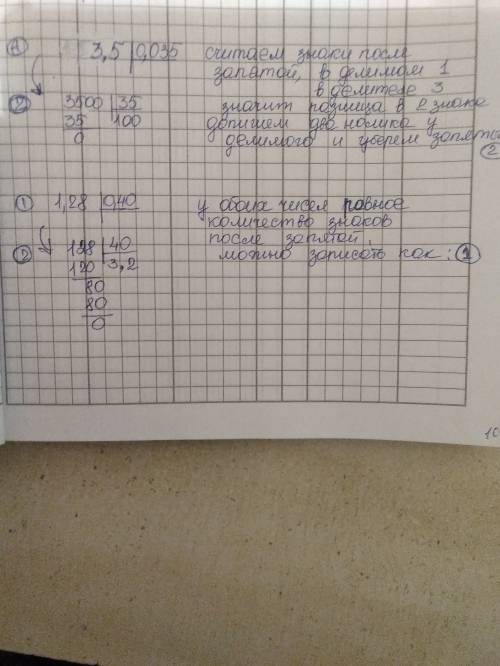 ① 3,5 | 0,035 считаем знаки после
запятой, в делимом 1
в делителе 3
② 3500 | 35 значит разница в 2 знака
35 | 100 допишем два нолика у
0 делимого и уберем запятые
②
① 1,28 | 0,40 у обоих чисел равное
количество знаков
после запятой,
② 128 | 40 можно записать как: ②
120 | 3,2
80
80
0
10